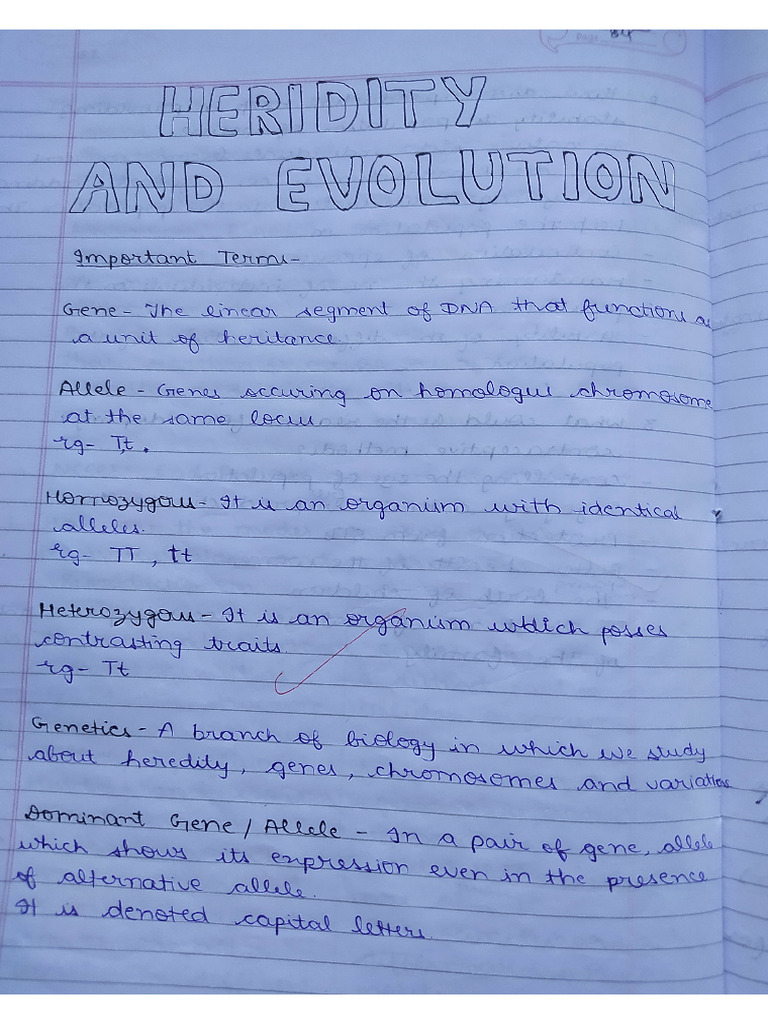 HERIDITY
AND EVOLUTION
Important Terms-
Gene - The linear segment of DNA that functions as
a unit of heritance.
Allele - Genes occuring on homologus chromosome
at the same locus
eg- T,t.
Homozygous - It is an organism with identical
alleles.
eg- TT, tt
Heterozygous - It is an organism which posses
contrasting traits.
eg- Tt
Genetics - A branch of biology in which we study
about heredity, genes, chromosomes and variations
Dominant Gene / Allele - In a pair of gene, allele
which shows its expression even in the presence
of alternative allele.
It is denoted capital letters.